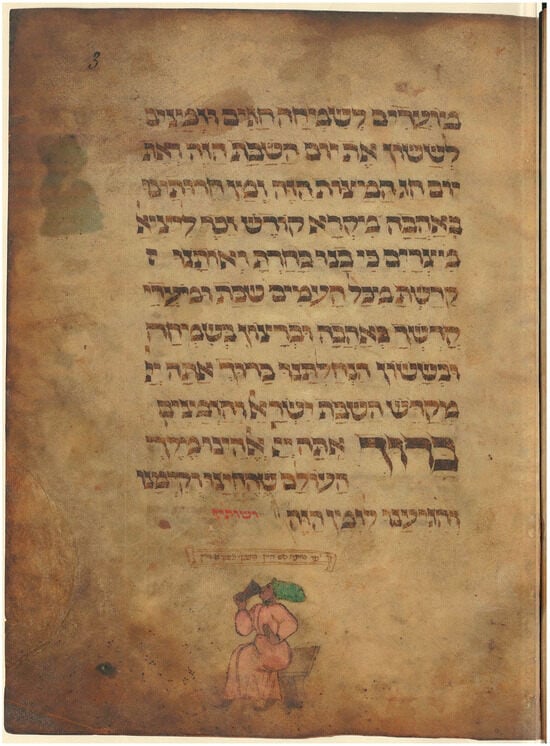 3
מועדים לשמחה חגים וזמנים
לששון את יום השבת הזה ואת
יום חג המצות הזה זמן חרותינו
באהבה מקרא קודש זכר ליציא
מצרים כי בנו בחרת ואותנו
קדשת מכל העמים שבת ומועדי
קדשך באהבה וברצון בשמחה
ובששון הנחלתנו ברוך אתה יי
מקדש השבת ישראל והזמנים
ברוך אתה יי אלהינו מלך
העולם שהחיינו וקימנו
והגיענו לזמן הזה ושותה